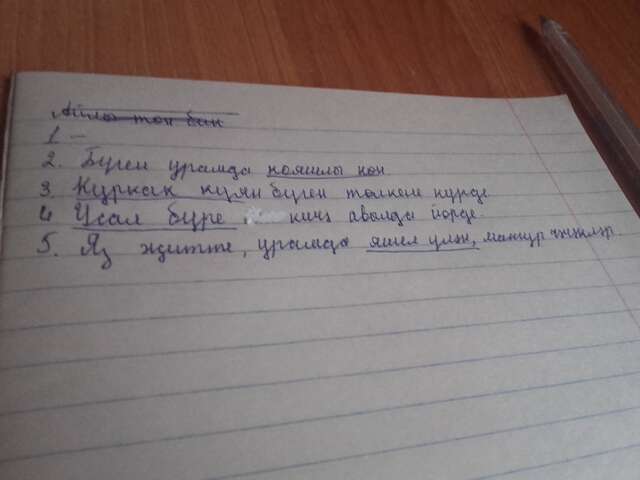 Айлы төн бик
1 –
2. Бүген урамда кояшлы көн
3. Куркак куян бүген төлкене күрде
4 Усал бүре кичә авылда йөрде.
5. Яз җитте, урамда яшел үлән, матур чәчәкләр.